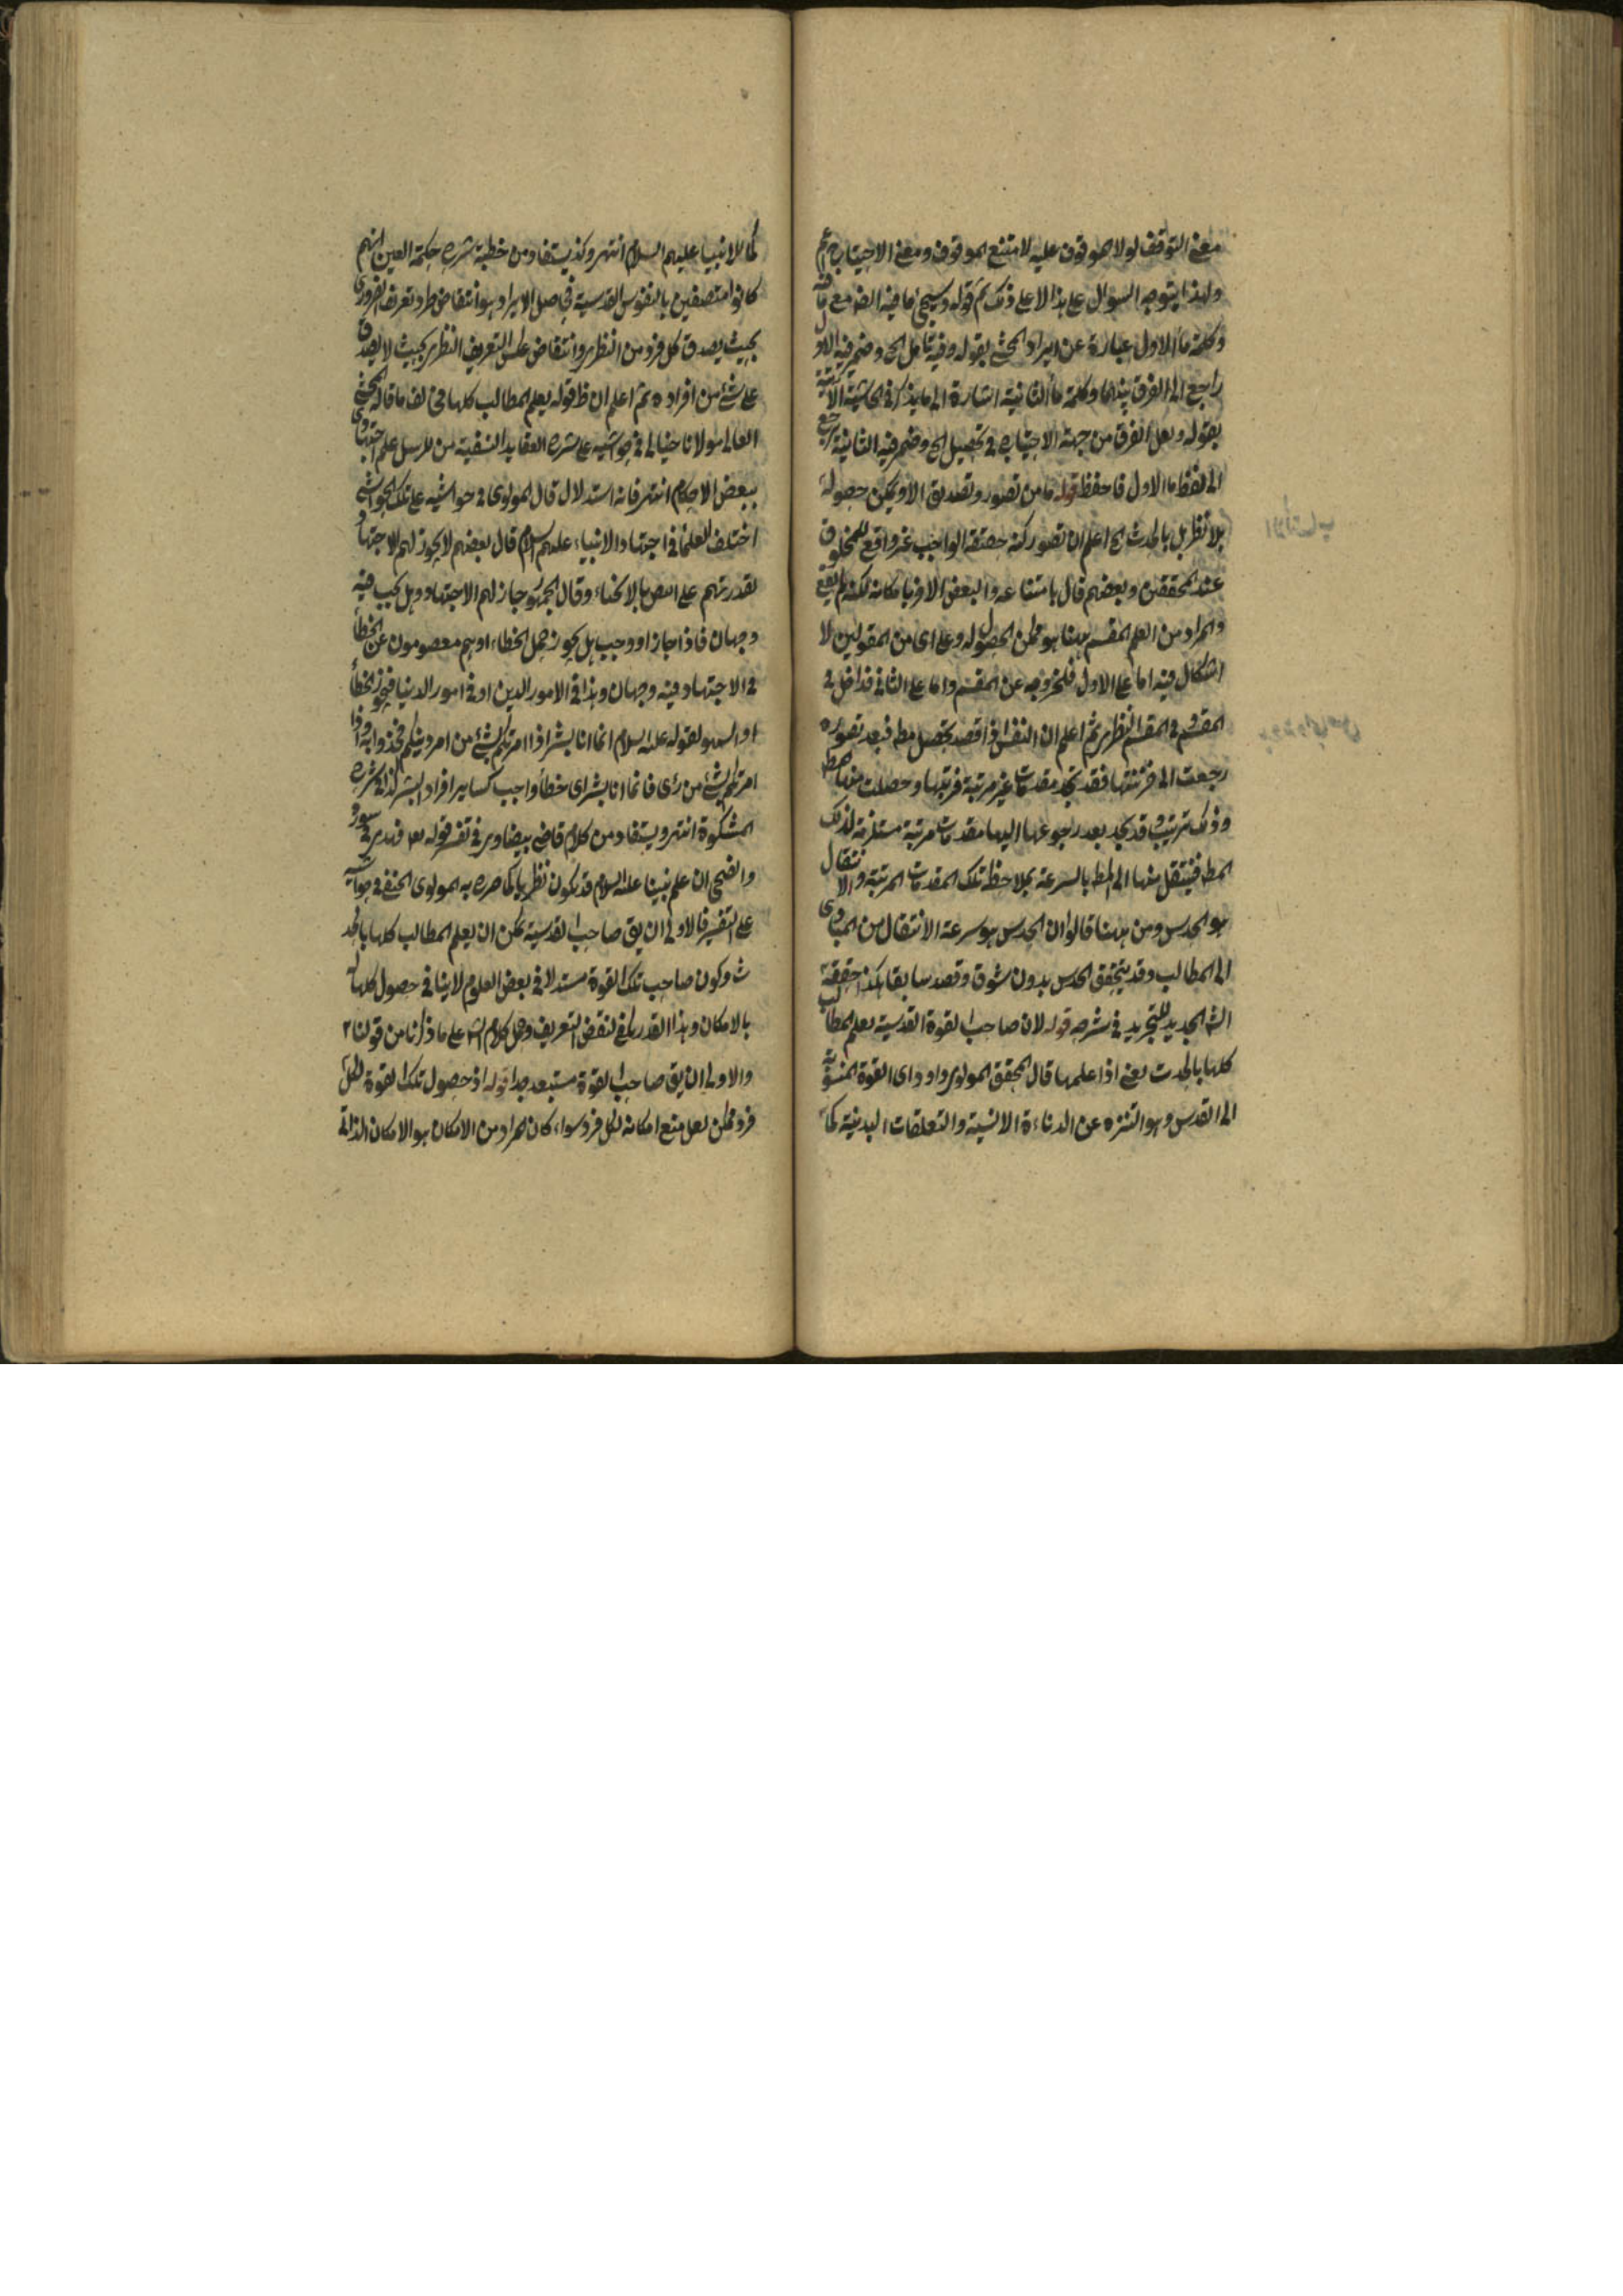 معنى التوقف لولا الموقوف عليه لامتنع الموقوف ومعنى الاحتياج اعم
ولهذا يتوجه السوال على هذا لا على ذلك تم قوله وسيجئ ما فيه الضم مع ما فيه
وكلمة ما الاول عبارة عن ايراد المحشي بقوله وفيه تامل الخ وضمير فيه الاول
راجع الى الفرق بينهما وكلمة ما الثانية اشارة الى ما يذكر في الحاشية الاتية
بقوله ولعل الفرق من جهة الاحتياج في تحصيل الخ وضمير فيه الثانية يرجع
الى لفظ ما الاول فاحفظ قوله ما من تصور وتصديق الا ويمكن حصوله
بلا نظر بل بالحدث الخ اعلم ان تصور كنه حقيقة الواجب غير واقع للمخلوق
عند المحققين وبعضهم قال بامتناعه والبعض الاخر بامكانه لكنه لم يقع
والمراد من العلم المقسم ههنا هو ممكن الحصول له وعلى اي من المقولين لا
اشكال فيه اما على الاول فلخروجه عن المقسم واما على الثاني فداخل في
المقسم وفي المقسم النظري ثم اعلم ان النفس اذا قصد تحصيل مط فبعد تصوره
رجعت الى خزنتها فقد تجد مقدمات غير مرتبة فرتبها وحصلت منها المط
وذلك ترتيب وقد تجد بعد رجوعها اليها مقدمات مرتبة مستلزمة لذلك
المط فينتقل منها الى المط بالسرعة بملاحظة تلك المقدمات المرتبة والانتقال
هو الحدس ومن ههنا قالوا ان الحدس هو سرعة الانتقال من المبادي
الى المطالب وقد يتحقق الحدس بدون شوق وقصد سابقا هكذا حققه
الش الجديد للتجريد في شرحه قوله لان صاحب القوة القدسية يعلم المطالب
كلها بالحدث يعني اذا علمها قال المحقق المولوي داود اي القوة المنسوبة
الى القدس وهو التنزه عن الدناءة الانسية والتعلقات البدنية كما
كما للانبيا عليهم السلام انتهى وكذ يستفاد من خطبة شرح حكمة العين انهم
كانوا متصفين بالنفوس القدسية في اصل الايراد هو انتقاض طرد تعريف الضروري
بحيث يصدق كل فرد من النظري وانتقاض عكس التعريف النظري بحيث لا يصدق
على شئ من افراده ثم اعلم ان ظ قوله يعلم المطالب كلها مخالف ما قاله المحشي
العالي مولانا خيالي في حواشيه على شرح العقايد النسفية من للرسل علم اجتهادي
ببعض الاحكام انتهى فانه استدلال قال المولوي في حواشيه على تلك الحواشي
اختلف العلما في اجتهاد الانبياء عليهم السلام قال بعضهم لا يجوز لهم الاجتهاد
لقدرتهم على النص بالايحاء وقال الجمهور جاز لهم الاجتهاد وهل يجب فيه
وجهان فاذا جاز او وجب هل يجوز حمل الخطاء او هم معصومون عن الخطأ
في الاجتهاد فيه وجهان وهذا في الامور الدين او في امور الدنيا فيجوز الخطأ
او السهو لقوله عليه السلام انما انا بشر اذا امرتكم بشئ من امر دينكم فخذوا به واذا
امرتكم بشئ من رأي فانما انا بشر اي خطأ واجب كساير افراد البشر كذا في شرح
المشكوة انتهى ويستفاد من كلام قاضي بيضاوي في تفسير قوله تعا فهدى في سورة
والضحى ان علم نبينا عليه السلام قد يكون نظريا كما صرح به المولوي الحنفي في حواشيه
على التفسير فالاولى ان يق صاحب القدسية يمكن ان يعلم المطالب كلها بالحد
ث وكون صاحب تلك القوة مستدلا في بعض العلوم لا ينافي حصول كلها له
بالامكان وهذا القدر يكفي لنقض التعريف وحمل كلام الش على ما ذكرنا من قولنا
والاولى ان يق صاحب القوة مستبعد جدا قوله اذ حصول تلك القوة لكل
فرد ممكن لعل منع امكانه لكل فرد سواء كان المراد من الامكان هو الامكان الذاتي